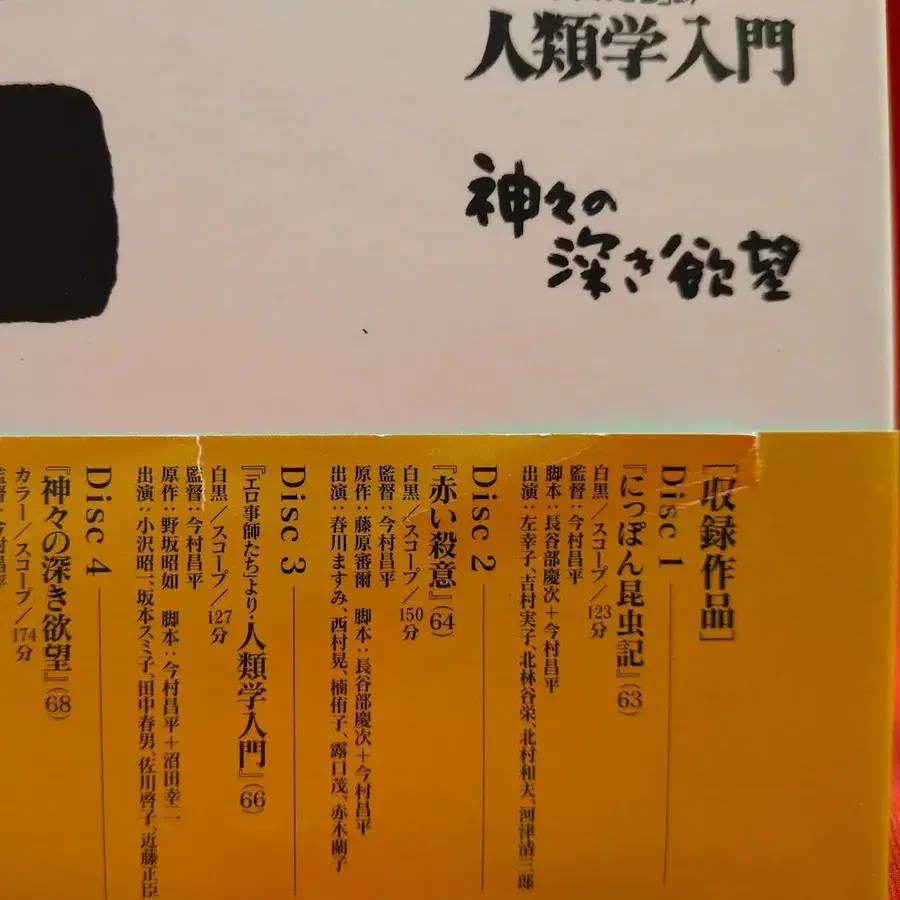 人類学入門
神々の
深き欲望
［収録作品］
Disc 1
『にっぽん昆虫記』(63)
白黒／スコープ／123分
監督：今村昌平
脚本：長谷部慶次＋今村昌平
出演：左幸子、吉村実子、北林谷栄、北村和夫、河津清三郎
Disc 2
『赤い殺意』(64)
白黒／スコープ／150分
監督：今村昌平
原作：藤原審爾　脚本：長谷部慶次＋今村昌平
出演：春川ますみ、西村晃、楠侑子、露口茂、赤木蘭子
Disc 3
『「エロ事師たち」より・人類学入門』(66)
白黒／スコープ／127分
監督：今村昌平
原作：野坂昭如　脚本：今村昌平＋沼田幸二
出演：小沢昭一、坂本スミ子、田中春男、佐川啓子、近藤正臣
Disc 4
『神々の深き欲望』(68)
カラー／スコープ／174分
監督：今村昌平